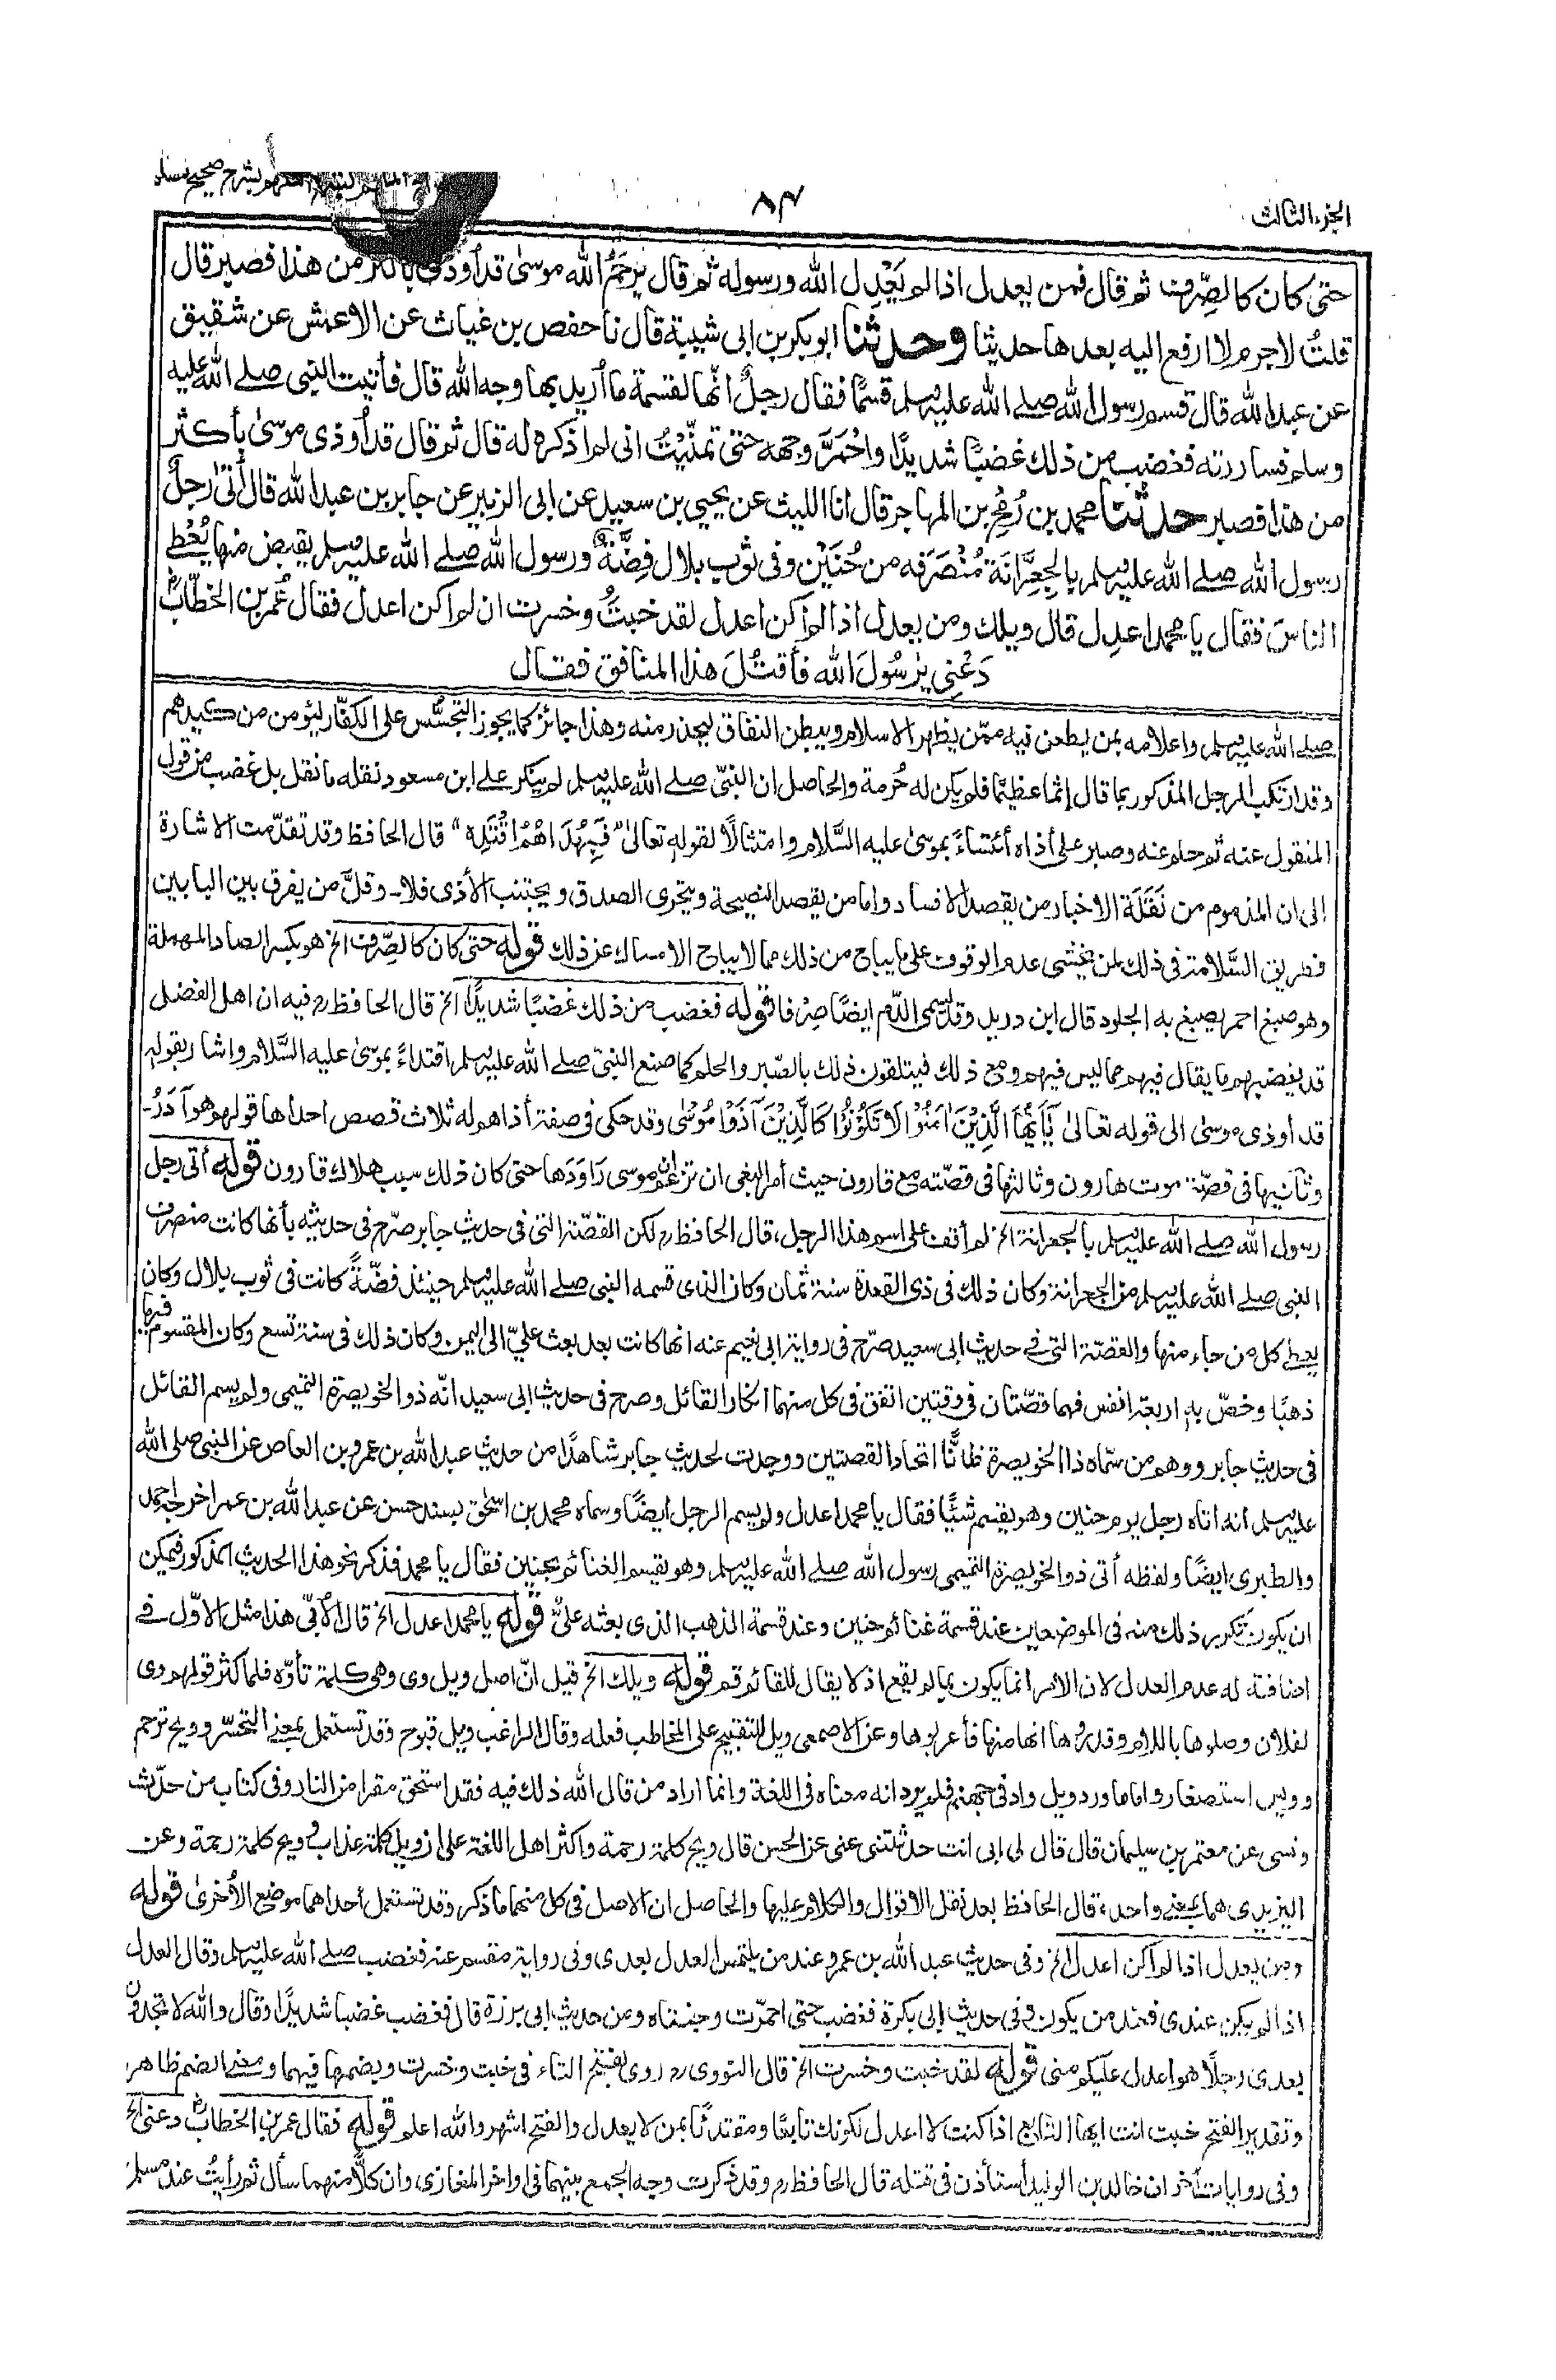 الجزء الثالث
٨٣
بشرح صحيح مسلم
حتى كان كالصِّرف ثم قال فمن يعدل اذا لم يَعْدِل الله ورسوله ثم قال يَرحَمُ الله موسىٰ قد أُوذى باكثر من هذا فصبر قال
قلتُ لا جرم لا ارفع اليه بعدها حديثا وحدثنا ابو بكر بن ابى شيبة قال نا حفص بن غياث عن الاعمش عن شقيق
عن عبد الله قال قسم رسول الله صلے الله عليه وسلم قسمًا فقال رجلٌ انّها لقسمة ما أُريد بها وجه الله قال فأتيت النبى صلے الله عليه
وسلم فساررته فغضب من ذلك غضبًا شديدًا واحْمَرَّ وجهه حتى تمنّيْتُ انى لم اذكره له قال ثم قال قد أُوذى موسىٰ بأكثر
من هذا فصبر حدثنا محمد بن رُمْحِ بن المهاجر قال انا الليث عن يحيى بن سعيد عن ابى الزبير عن جابر بن عبد الله قال أَتىٰ رجلٌ
رسول الله صلے الله عليه وسلم بالجِعِرَّانَة مُنْصَرَفه من حُنَيْن وفى ثوب بلال فِضَّةٌ ورسول الله صلے الله عليه وسلم يقبض منها يُعْطے
الناسَ فقال يا محمد اعدِل قال ويلك ومن يعدل اذا لم اكن اعدل لقد خبتُ وخسرت ان لم اكن اعدل فقال عُمر بن الخطّابؓ
دَعْنِى يا رسُولَ الله فأقتُلَ هذا المنافق فقال
صلے الله عليه وسلم واعلامه بمن يطعن فيه ممّن يظهر الاسلام ويبطن النفاق ليحذر منه وهذا جائز كما يجوز التجسُّس على الكفّار ليؤمن من كيدهم
وقد ارتكب الرجل المذكور بما قال إثمًا عظيمًا فلم يكن له حُرمة والحاصل ان النبىّ صلے الله عليه وسلم لم ينكر علے ابن مسعود نقله ما نقل بل غضب من قول
المنقول عنه ثم حلم عنه وصبر على أذاه أئتساءً بموسىٰ عليه السَّلام وامتثالًا لقوله تعالىٰ "فَبِهُدَاهُمُ اقْتَدِهْ" قال الحافظ وقد تقدّمت الاشارة
الى ان المذموم من نَقَلَة الاخبار من يقصد الافساد واما من يقصد النصيحة ويتحرى الصدق ويجتنب الأذى فلا۔ وقلَّ من يفرق بين البابين
فطريق السَّلامة فى ذلك لمن يخشى عدم الوقوف على ما يباح من ذلك مما لا يباح الامساك عن ذلك قوله حتى كان كالصِّرف الخ هو بكسر الصاد المهملة
وهو صبغ احمر يصبغ به الجلود قال ابن دريد وقد يسمى الدّم ايضًا صِرفا قوله فغضب من ذلك غضبًا شديدًا الخ قال الحافظؒ فيه ان اهل الفضل
قد يغضبهم ما يقال فيهم مما ليس فيهم ومع ذلك فيتلقون ذلك بالصّبر والحلم كما صنع النبىّ صلے الله عليه وسلم اقتداءً بموسىٰ عليه السَّلام واشار بقوله
قد أوذى موسىٰ الى قوله تعالىٰ يٰٓاَيُّهَا الَّذِيْنَ اٰمَنُوْا لَا تَكُوْنُوْا كَالَّذِيْنَ آذَوْا مُوْسٰى وقد حكى فى صفة أذاهم له ثلاث قصص احداها قولهم هو آدَرُ۔
وثانيها فى قصّة موت هارون وثالثها فى قصّته مع قارون حيث أمر البغى ان تزعم ان موسى رَاوَدَها حتى كان ذلك سبب هلاك قارون قوله أتى رجل
رسول الله صلے الله عليه وسلم بالجعرانة الخ لم أقف على اسم هذا الرجل، قال الحافظؒ لكن القصّة التى فى حديث جابر صرّح فى حديثه بأنها كانت منصرف
النبى صلے الله عليه وسلم من الجعرانة وكان ذلك فى ذى القعدة سنة ثمان وكان الذى قسمه النبى صلے الله عليه وسلم حينئذ فضّةً كانت فى ثوب بلال وكان
يعطے كل من جاء منها والقصّة التى فے حديث ابى سعيد صرّح فى رواية ابى نعيم عنه انها كانت بعد بعث علىّ الى اليمن وكان ذلك فى سنة تسع وكان المقسوم فيها
ذهبًا وخصّ به اربعة انفس فهما قصّتان فى وقتين اتفق فى كل منهما انكار القائل وصرح فى حديث ابى سعيد انّه ذو الخويصرة التميمى ولم يسم القائل
فى حديث جابر ووهم من سمّاه ذا الخويصرة ظانًّا اتحاد القصتين ووجدت لحديث جابر شاهدًا من حديث عبد الله بن عمرو بن العاص عن النبى صلى الله
عليه وسلم انه اتاه رجل يوم حنين وهو يقسم شيئًا فقال يا محمد اعدل ولم يسم الرجل ايضًا وسماه محمد بن اسحٰق بسند حسن عن عبد الله بن عمر اخرجه احمد
والطبرى ايضًا ولفظه أتى ذو الخويصرة التميمى رسول الله صلے الله عليه وسلم وهو يقسم الغنائم بحنين فقال يا محمد فذكر نحو هذا الحديث المذكور فيمكن
ان يكون تكرر ذلك منه فى الموضعين عند قسمة غنائم حنين وعند قسمة الذهب الذى بعثه علىٌّ قوله يا محمد اعدل الخ قال الأبّى هذا مثل الاوّل فے
اضافته له عدم العدل لان الامر انما يكون بما لم يقع اذ لا يقال للقائم قم قوله ويلك الخ قيل انّ اصل ويل وى وهى كلمة تأوّه فلما كثر قولهم وى
لفلان وصلوها باللام وقدروها انها منها فأعربوها وعن الاصمعى ويل للتقبيح على المخاطب فعله وقال الراغب ويل قبوح وقد تستعمل بمعنے التحسّر وويح ترحم
وويس استصغار واما ما ورد ويل واد فى جهنم فلم يرد انه معناه فى اللغة وانما اراد من قال الله ذلك فيه فقد استحق مقرا من النار وفى كتاب من حدّث
ونسى عن معتمر بن سليمان قال قال لى ابى انت حدثتنى عنى عن الحسن قال ويح كلمة رحمة واكثر اهل اللغة على ان ويل كلمة عذاب وويح كلمة رحمة وعن
اليزيدى هما بمعنے واحد، قال الحافظ بعد نقل الاقوال والكلام عليها والحاصل ان الاصل فى كل منهما ما ذكر وقد تستعمل أحداهما موضع الأخرىٰ قوله
ومن يعدل اذا لم اكن اعدل الخ وفى حديث عبد الله بن عمرو عند من يلتمس العدل بعدى وفى رواية مقسم عنه فغضب صلے الله عليه وسلم وقال العدل
اذا لم يكن عندى فعند من يكون وفى حديث ابى بكرة فغضب حتى احمرّت وجنتاه ومن حديث ابى برزة قال فغضب غضبا شديدًا وقال والله لا تجدون
بعدى رجلًا هو اعدل عليكم منى قوله لقد خبت وخسرت الخ قال النووىؒ روى بفتح التاء فى خبت وخسرت وبضمها فيهما ومعنے الضم ظاهر
وتقدير الفتح خبت انت ايها التابع اذا كنت لا اعدل لكونك تابعًا ومقتدًا بمن لا يعدل والفتح اشهر والله اعلم قوله فقال عمر بن الخطابؓ دعنى الخ
وفى روايات أخر ان خالد بن الوليد أستأذن فى قتله قال الحافظؒ وقد ذكرت وجه الجمع بينهما فى اواخر المغازى وان كلًّا منهما سأل ثم رأيتُ عند مسلم